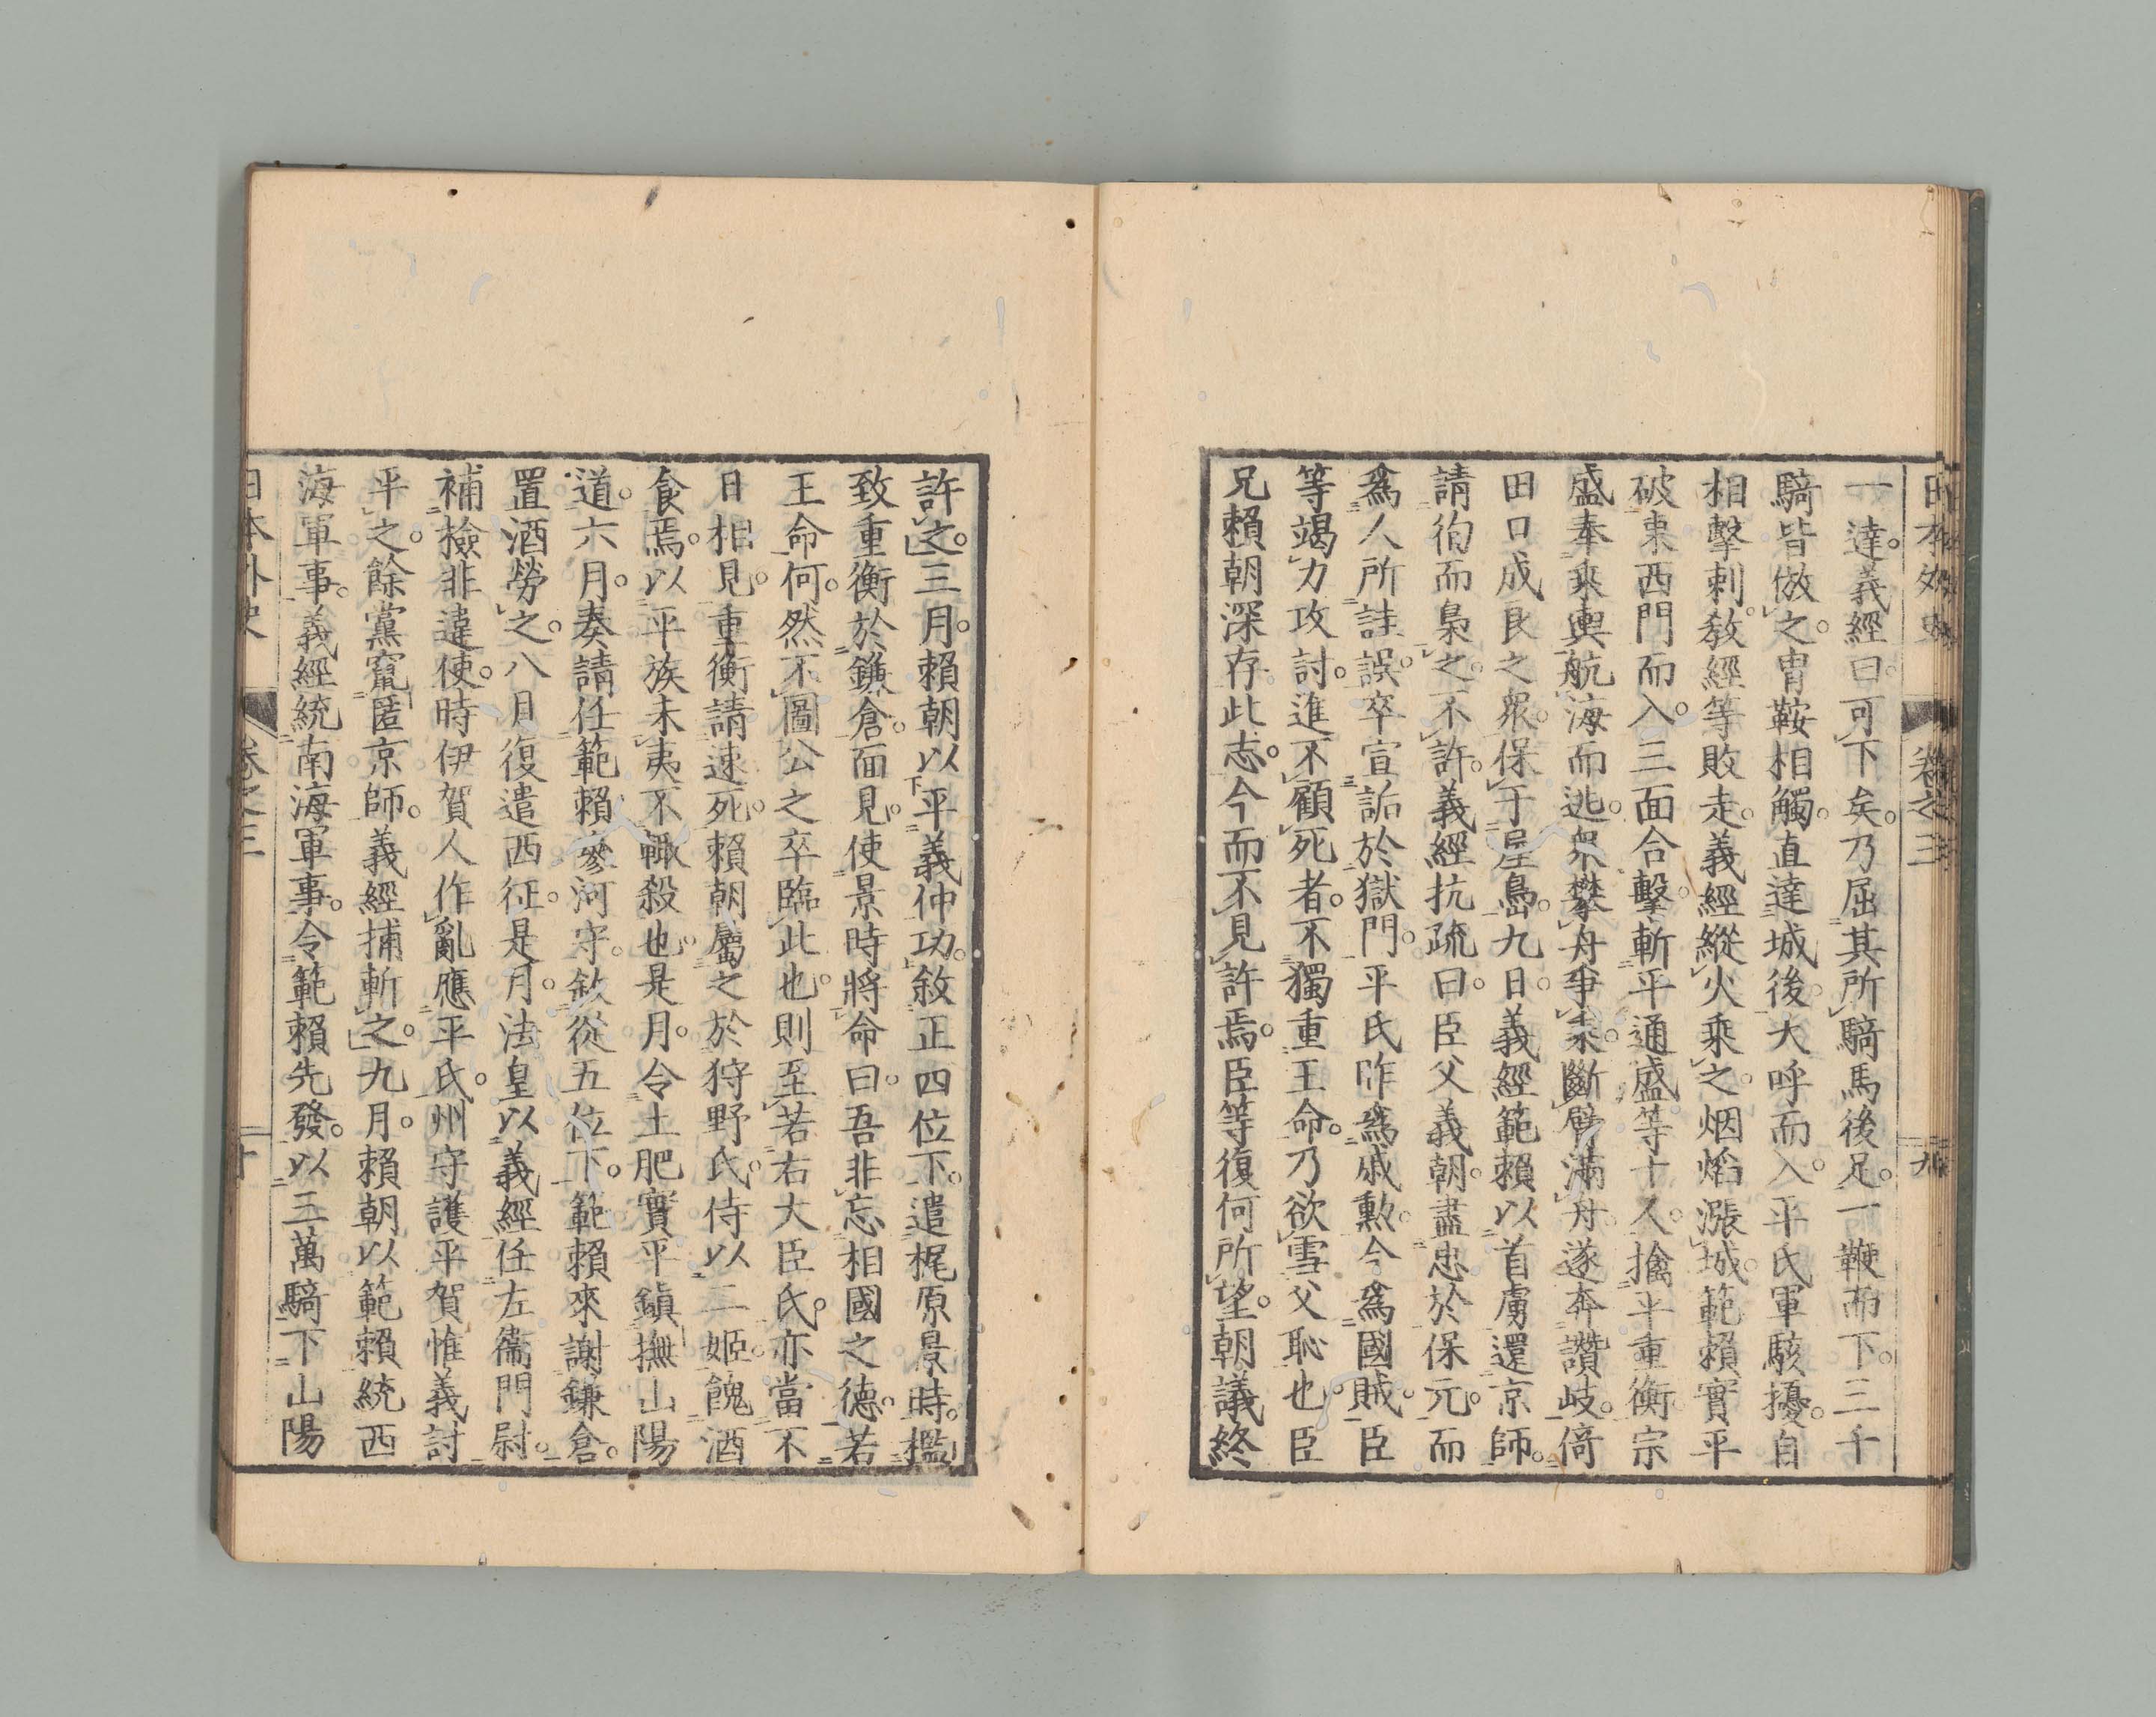 日本外史 卷之三
一達。義經曰。可下矣。乃屈其所騎馬後足。一鞭而下。三千
騎皆倣之。冑鞍相觸。直達城後。大呼而入。平氏軍駭擾。自
相擊刺。敎經等敗走。義經縱火乘之。烟焰漲城。範賴實平
破東西門而入。三面合擊。斬平通盛等十人。擒平重衡。宗
盛奉乘輿航海而逃。衆攀舟爭乘。斷臂滿舟。遂奔讚岐。倚
田口成良之衆。保于屋島。九日。義經範賴以首虜還京師。
請徇而梟之。不許。義經抗疏曰。臣父義朝。盡忠於保元。而
爲人所詿誤。卒宣詬於獄門。平氏昨爲戚勳。今爲國賊。臣
等竭力攻討。進不顧死者。不獨重王命。乃欲雪父恥也。臣
兄賴朝深存此志。今而不見許焉。臣等復何所望。朝議終
許之。三月。賴朝以平義仲功。敘正四位下。遣梶原景時。檻
致重衡於鎌倉。面見。使景時將命曰。吾非忘相國之德。若
王命何。然不圖公之卒臨此也。則至若右大臣氏。亦當不
日相見。重衡請速死。賴朝屬之於狩野氏。侍以二姬。餽酒
食焉。以平族未夷。不輒殺也。是月。令土肥實平鎭撫山陽
道。六月。奏請任範賴參河守。敘從五位下。範賴來謝鎌倉。
置酒勞之。八月復遣西征。是月。法皇以義經任左衞門尉。
補檢非違使。時伊賀人作亂應平氏。州守護平賀惟義討
平之。餘黨竄匿京師。義經捕斬之。九月。賴朝以範賴統西
海軍事。義經統南海軍事。令範賴先發。以三萬騎下山陽
日本外史 卷之三